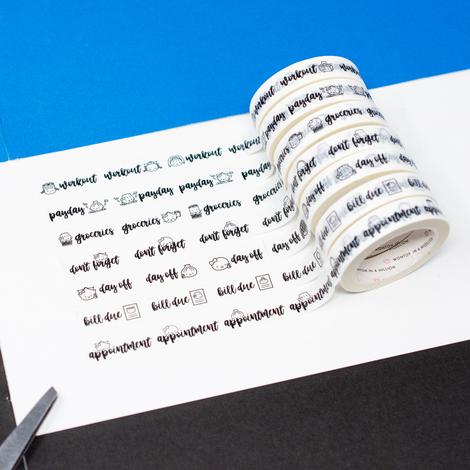 workout workout workout workout workout workout
payday payday payday payday payday
groceries groceries groceries groceries
don't forget don't forget don't forget don't forget
day off day off day off day off day off
bill due bill due bill due bill due bill due
appointment appointment appointment appointment appointment
MOON IN A MILLION